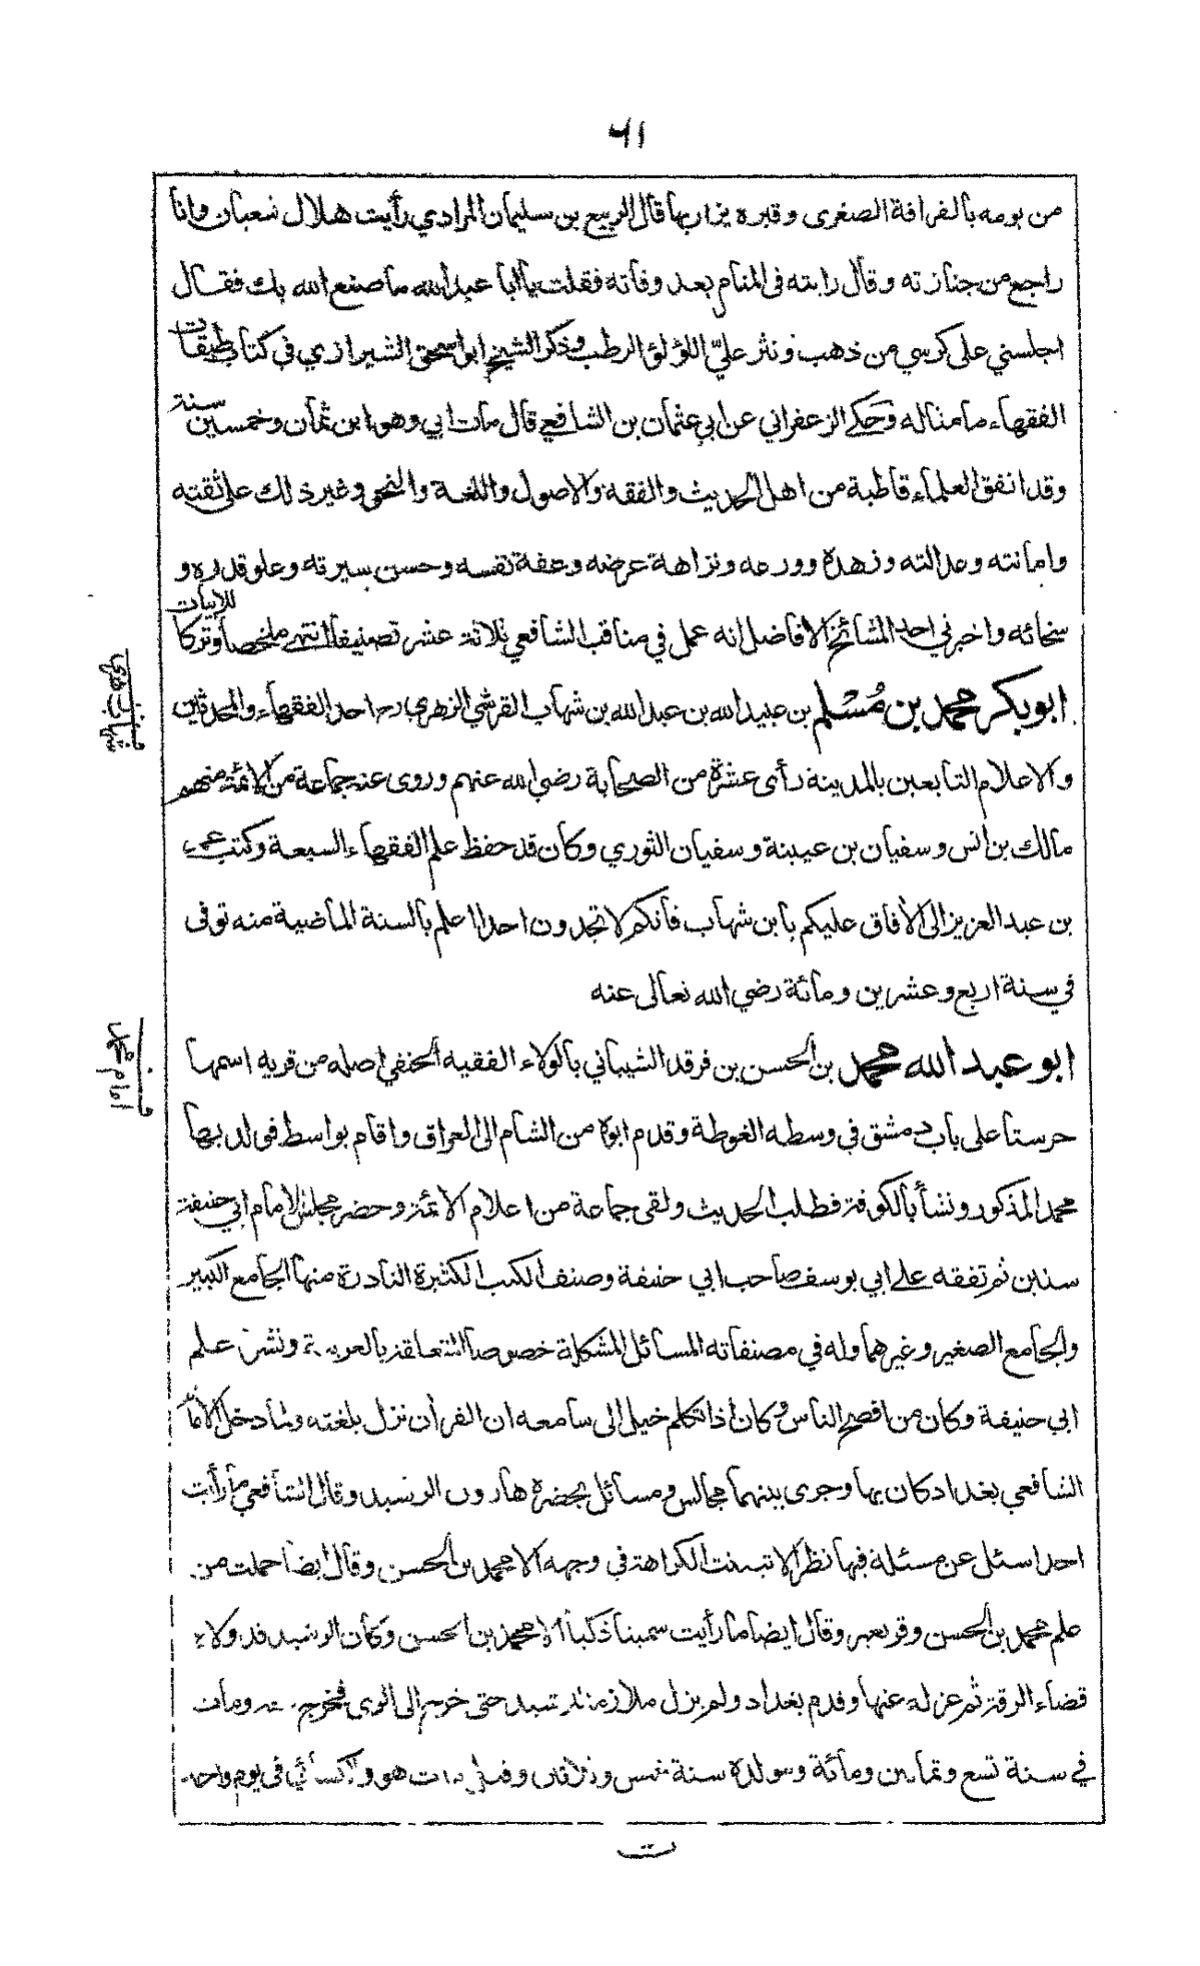 ٦١
من يومه بالقرافة الصغرى وقبره يزار بها قال الربيع بن سليمان المرادي رأيت هلال شعبان وانا
راجع من جنازته وقال رايته في المنام بعد وفاته فقلت يا ابا عبد الله ما صنع الله بك فقال
اجلسني على كرسي من ذهب ونثر عليّ اللؤلؤ الرطب وذكر الشيخ ابو اسحق الشيرازي في كتاب طبقات
الفقهاء ما مثاله وحكى الزعفراني عن ابي عثمان بن الشافعي قال مات ابي وهو ابن ثمان وخمسين سنة
وقد اتفق العلماء قاطبة من اهل الحديث والفقه والاصول واللغة والنحو وغير ذلك على ثقته
وامانته وعدالته وزهده وورعه ونزاهة عرضه وعفة نفسه وحسن سيرته وعلو قدره و
سخائه واخبرني احد المشائخ الافاضل انه عمل في مناقب الشافعي ثلاثة عشر تصنيفا انتهى ملخصا وتركا للابيات
ابو بكر محمد بن مُسْلم بن عبيد الله بن عبد الله بن شهاب القرشي الزهري رح احد الفقهاء والمحدثين
والاعلام التابعين بالمدينة رأى عشرة من الصحابة رضي الله عنهم وروى عنه جماعة من الائمة منهم
مالك بن انس وسفيان بن عيينة وسفيان الثوري وكان قد حفظ علم الفقهاء السبعة وكتب عمر
بن عبد العزيز الى الأفاق عليكم بابن شهاب فانكم لا تجدون احدا اعلم بالسنة الماضية منه توفى
في سنة اربع وعشرين ومائة رضي الله تعالى عنه
ابو عبد الله محمد بن الحسن بن فرقد الشيباني بالولاء الفقيه الحنفي اصله من قريه اسمها
حرستا على باب دمشق في وسطه الغوطة وقدم ابوه من الشام الى العراق واقام بواسط فولد بها
محمد المذكور ونشأ بالكوفة فطلب الحديث ولقى جماعة من اعلام الائمة وحضر مجلس الامام ابي حنيفة
سنين ثم تفقه على ابي يوسف صاحب ابي حنيفة وصنف الكتب الكثيرة النادرة منها الجامع الكبير
والجامع الصغير وغيرهما وله في مصنفاته المسائل المشكلة خصوصا المتعلقة بالعربية ونشر علم
ابي حنيفة وكان من افصح الناس وكان اذا تكلم خيل الى سامعه ان القرأن نزل بلغته ولما دخل الامام
الشافعي بغداد كان بها وجرى بينهما مجالس ومسائل بحضرة هارون الرشيد وقال الشافعي ما رأيت
احدا سئل عن مسئلة فيها نظر الا تبينت الكراهة في وجهه الا محمد بن الحسن وقال ايضا حملت من
علم محمد بن الحسن وقر بعير وقال ايضا ما رأيت سمينا ذكيا الا محمد بن الحسن وكان الرشيد قد ولاه
قضاء الرقة ثم عزله عنها وقدم بغداد ولم يزل ملازما للرشيد حتى خرج الى الري فخرج معه ومات
في سنة تسع وثمانين ومائة ومولده سنة خمس وثلاثين وقيل مات هو والكسائي في يوم واحد
ت
امام محمد